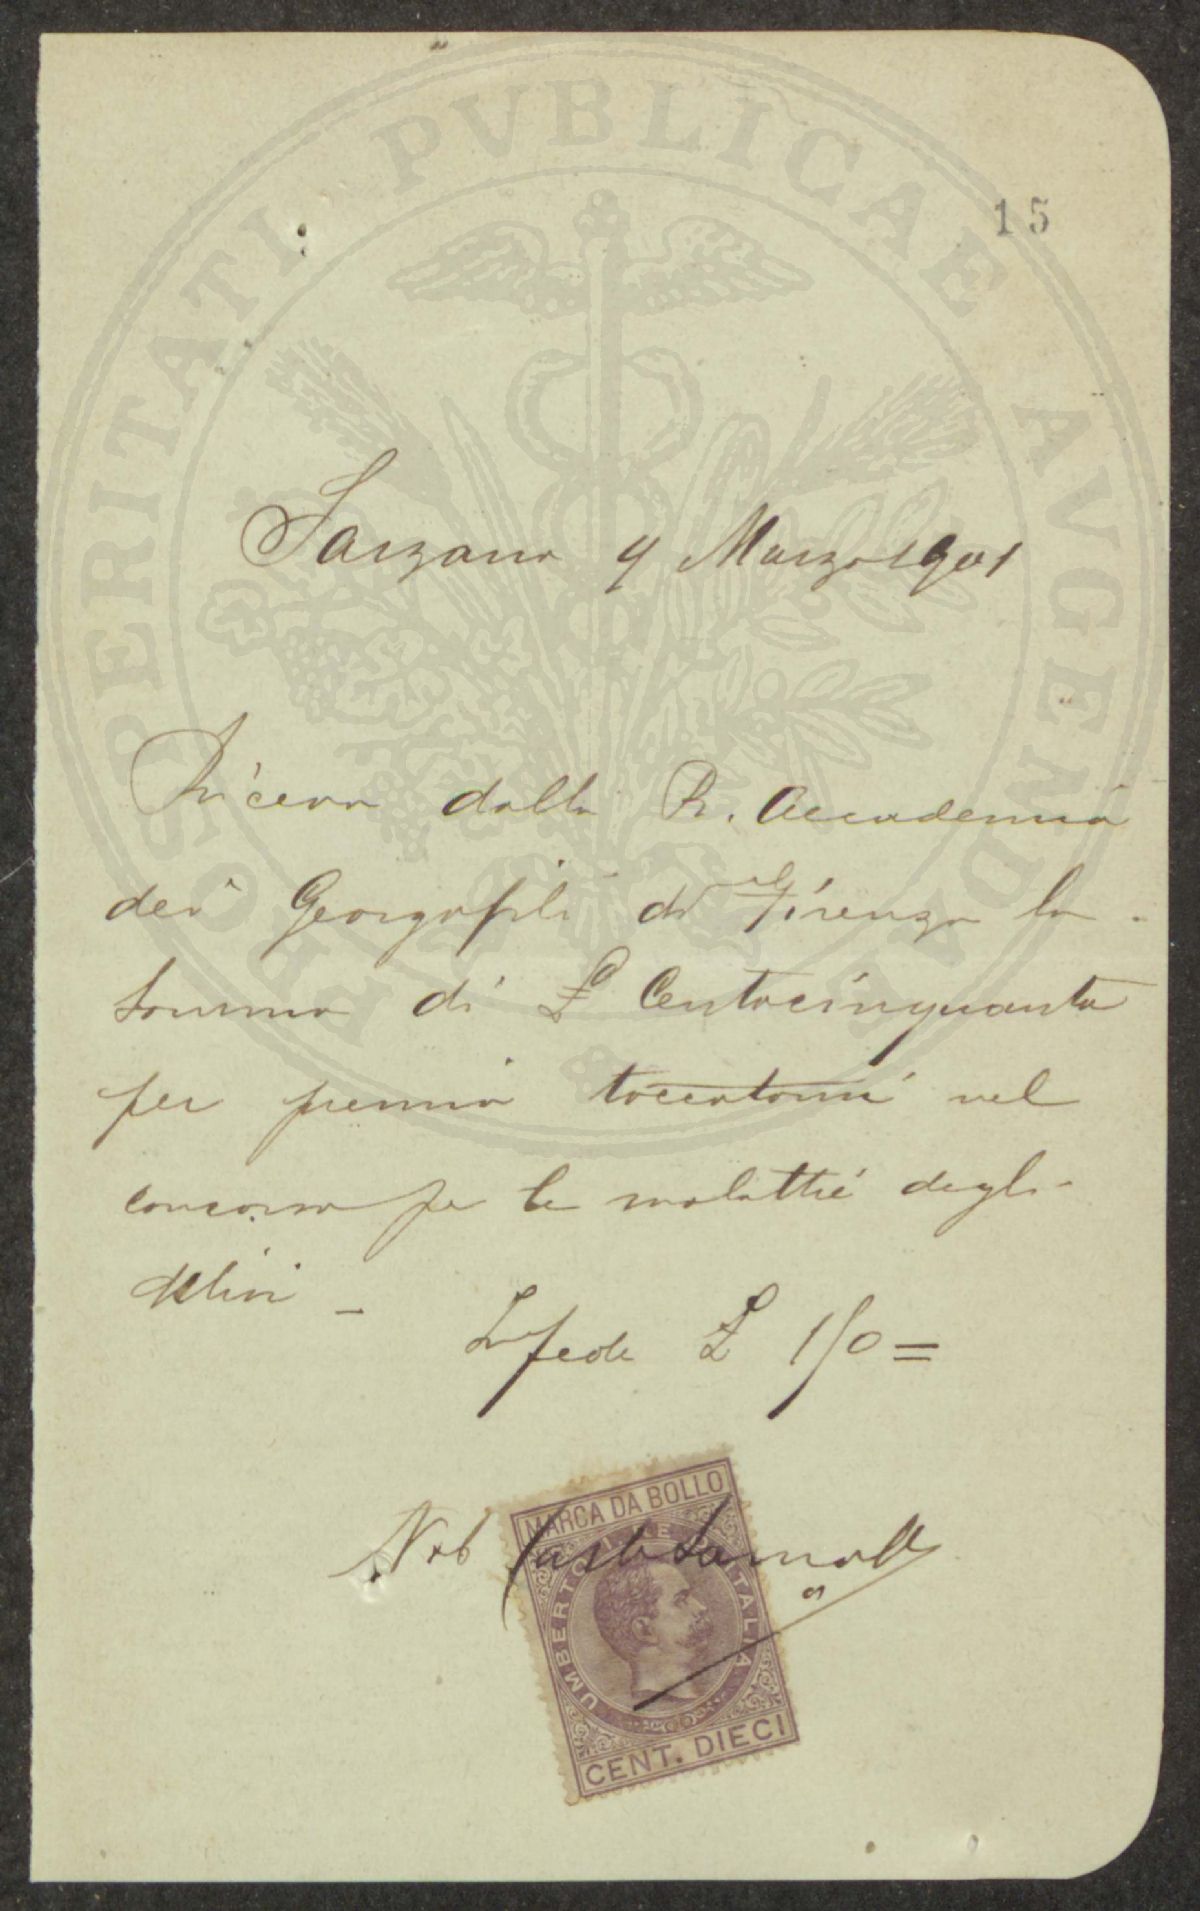 15
Sarzana 4 Marzo 1901
Ricevo dalla R. Accademia
dei Georgofili di Firenze la
somma di £ Centocinquanta
per premio toccatomi nel
concorso per le malattie degli
Ulivi -
In fede £ 150 =
Carlo
MARCA DA BOLLO
UMBERTO I. RE D'ITALIA
CENT. DIECI
PROSPERITATI PVBLICAE AVGENDAE